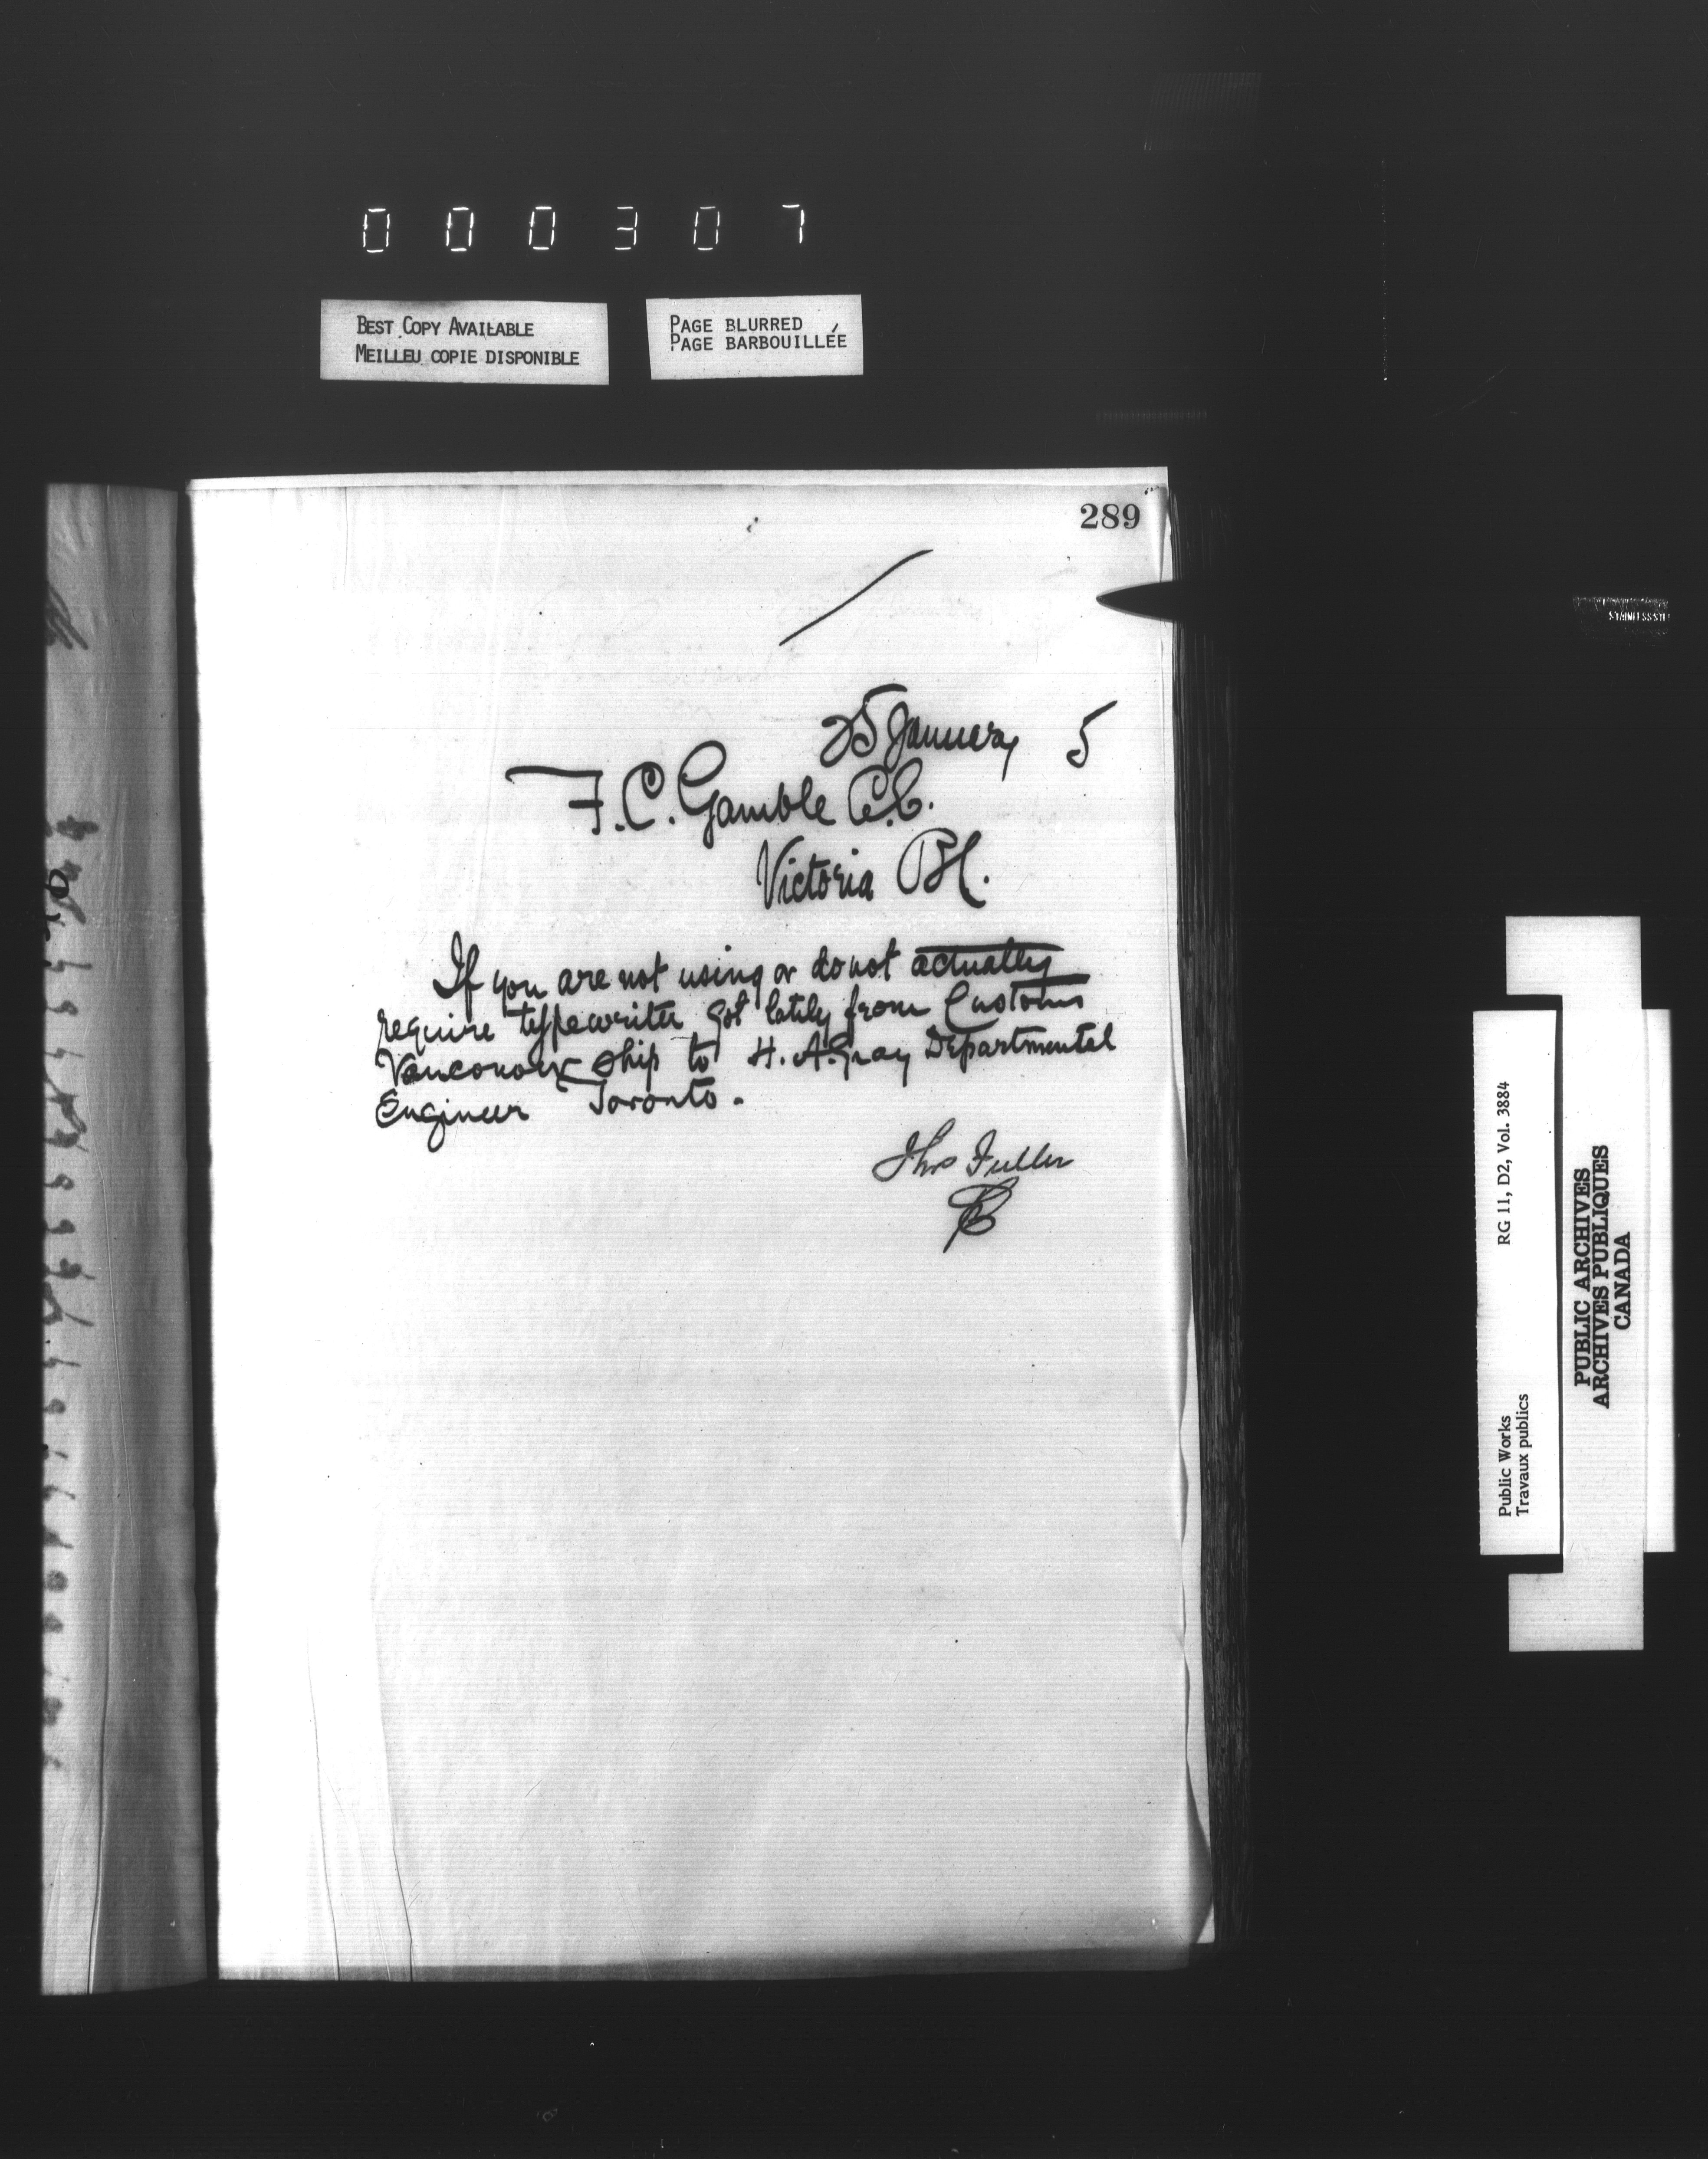 0 0 0 3 0 7
BEST COPY AVAILABLE
MEILLEU COPIE DISPONIBLE
PAGE BLURRED
PAGE BARBOUILLÉE
289
25 January 5
F. C. Gamble C.E.
Victoria BC.
If you are not using or do not actually
require typewriter got lately from Customs
Vancouver ship to H. A. Gray Departmental
Engineer Toronto.
Thos Fuller
Public Works
Travaux publics
RG 11, D2, Vol. 3884
PUBLIC ARCHIVES
ARCHIVES PUBLIQUES
CANADA